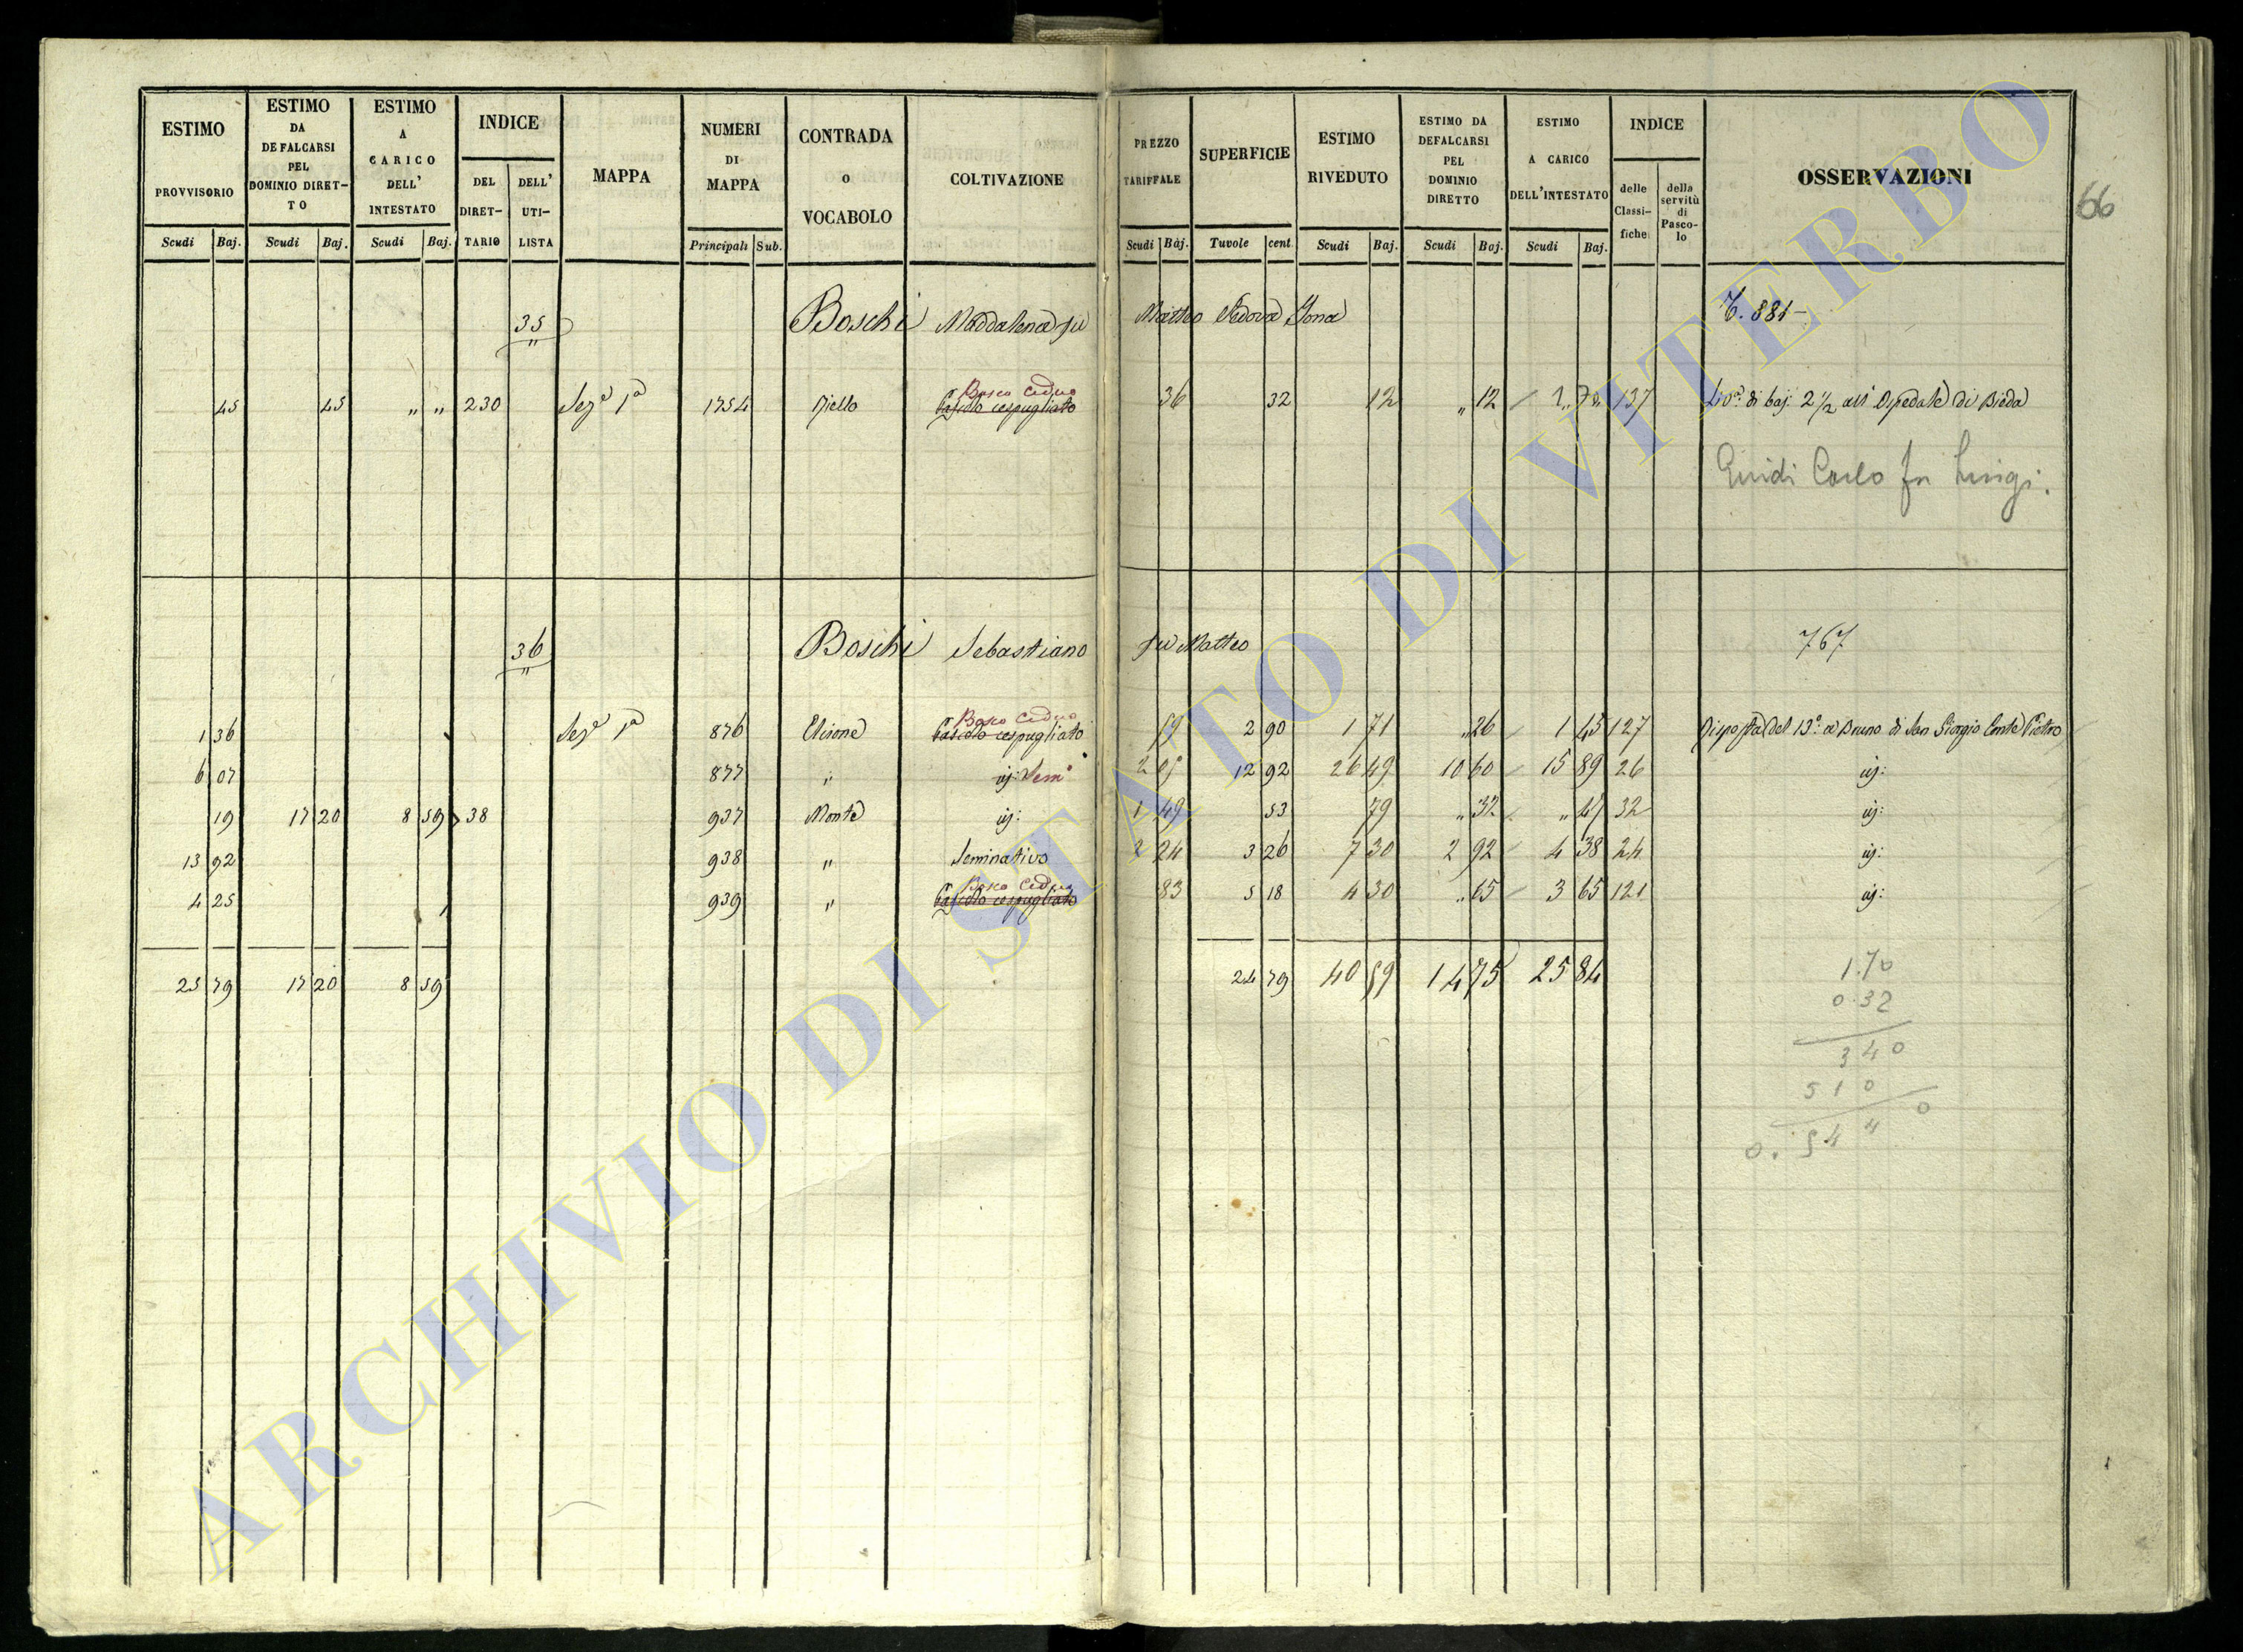 ESTIMO PROVVISORIO Scudi Baj.
ESTIMO DA DEFALCARSI PEL DOMINIO DIRET-TO Scudi Baj.
ESTIMO A CARICO DELL' INTESTATO Scudi Baj.
INDICE DEL DIRET-TARIO DELL' UTI-LISTA
MAPPA
NUMERI DI MAPPA Principali Sub.
CONTRADA O VOCABOLO
COLTIVAZIONE
PREZZO TARIFFALE Scudi Baj.
SUPERFICIE Tavole cent.
ESTIMO RIVEDUTO Scudi Baj.
ESTIMO DA DEFALCARSI PEL DOMINIO DIRETTO Scudi Baj.
ESTIMO A CARICO DELL'INTESTATO Scudi Baj.
INDICE delle Classi-fiche della servitù di Pasco-lo
OSSERVAZIONI
66
35 Boschi Maddalena fu Matteo Vedova Iona 881
Bosco Ceduo
45 45 " " 230 Sez.a 1a 1754 Pascolo cespugliato 36 32 12 " 12 137 di baj: 2 1/2 all' Ospedale di Bieda
Guidi Carlo fu Luigi.
36 Boschi Sebastiano fu Matteo 767
Bosco Ceduo
1 36 Sez.a 1a 876 Pascolo cespugliato 59 2 90 1 71 " 26 1 45 127 Risposta del 13o a Bruno di San Giorgio Conte Pietro
6 07 877 " id: Sem.o 2 05 12 92 26 49 10 60 15 89 26 id:
19 17 20 8 59 38 937 Monte id: 1 49 53 79 " 32 " 47 32 id:
13 92 938 " Seminativo 2 24 3 26 7 30 2 92 4 38 24 id:
Bosco Ceduo
4 25 939 " Pascolo cespugliato 83 5 18 4 30 " 65 3 65 121 id:
25 79 17 20 8 59 24 79 40 59 14 75 25 84
1.70
0.32
340
510
0.5440
ARCHIVIO DI STATO DI VITERBO